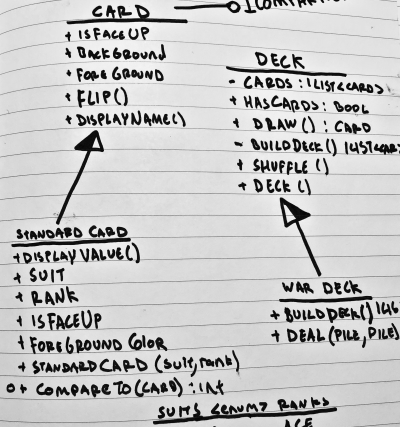 CARD
+ ISFACEUP
+ BACKGROUND
+ FOREGROUND
+ FLIP()
+ DISPLAYNAME()
DECK
- CARDS : ILIST<CARDS>
+ HASCARDS : BOOL
+ DRAW() : CARD
- BUILDDECK()
+ SHUFFLE ()
+ DECK ()
STANDARD CARD
+ DISPLAY VALUE()
+ SUIT
+ RANK
+ ISFACEUP
+ FOREGROUND COLOR
+ STANDARDCARD (SUIT, RANK)
O+ COMPARETO (CARD) : INT
WAR DECK
+ BUILDDECK()
+ DEAL (PILE, PILE)
SUITS <ENUM> RANKS
ACE